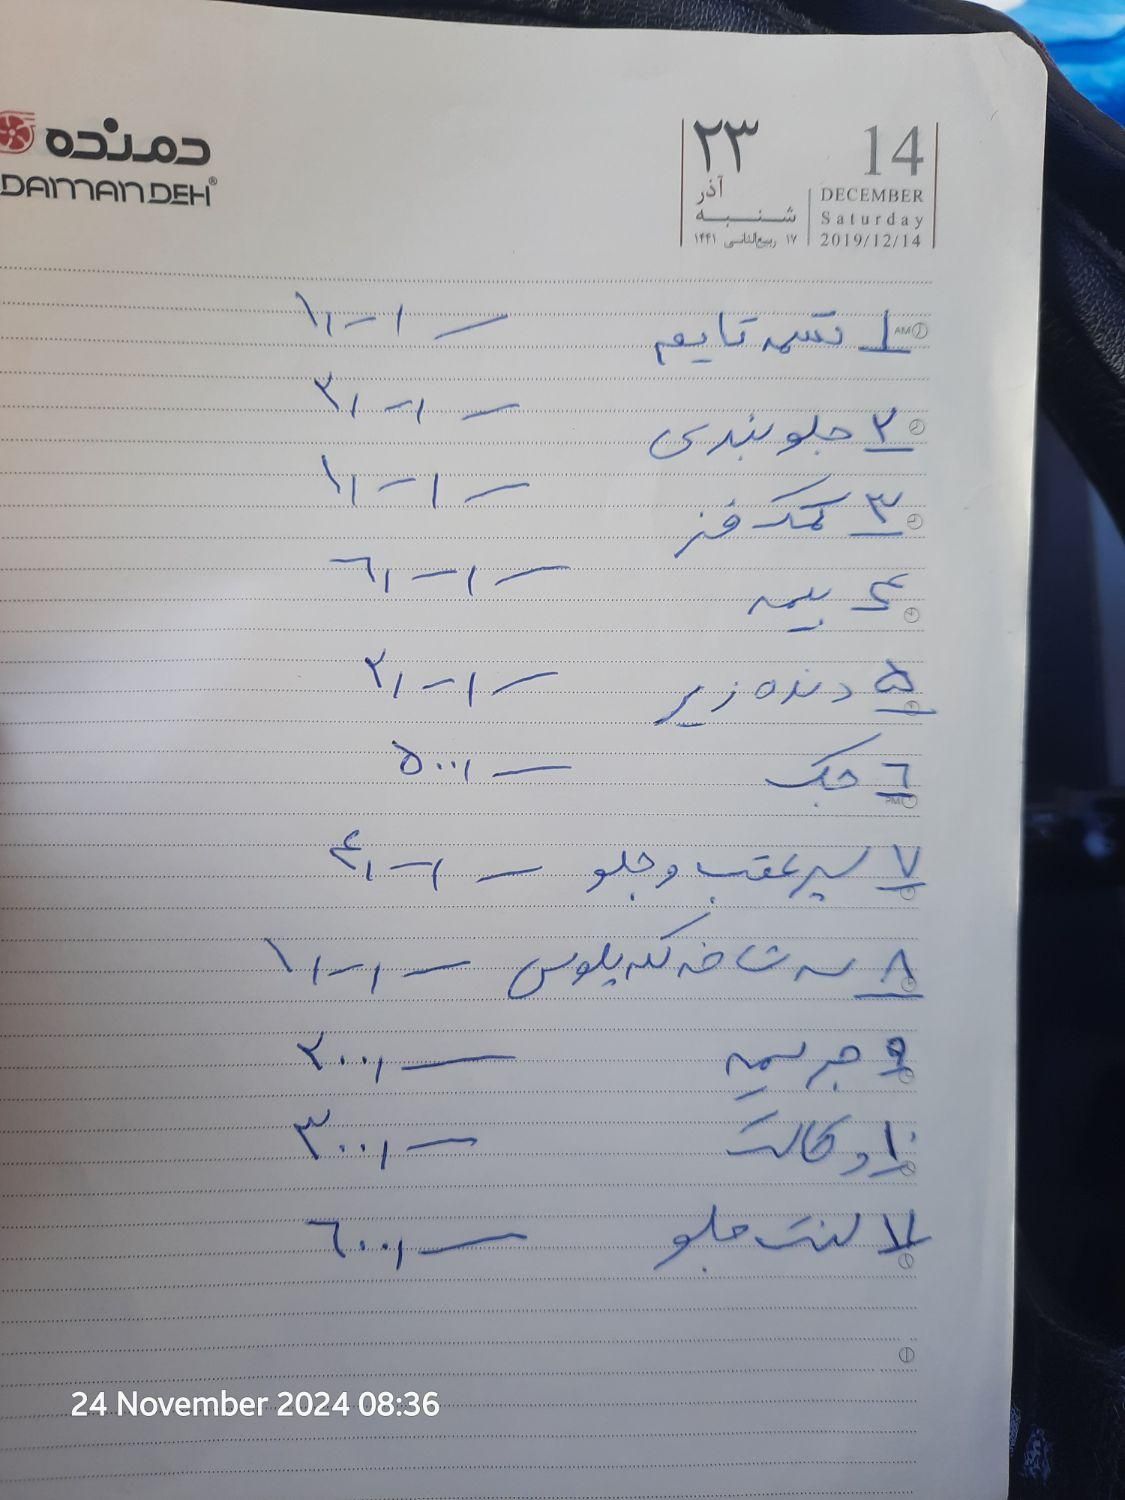 دمنده
DAMANDEH®
۲۳
آذر
شنبه
۱۷ ربیع‌الثانی ۱۴۴۱
14
DECEMBER
Saturday
2019/12/14
۱ تسمه تایم — ۱٫—٫۱
۲ جلوبندی — ۳٫—٫۱
۳ کمک فنر — ۱٫—٫۱
۴ بیمه — ۶٫—٫۱
۵ دنده زیر — ۲٫—٫۱
۶ جک — ۵۰۰٫
۷ سپر عقب و جلو — ۴٫—٫
۸ سه شاخه کله پلوس — ۱٫—٫
۹ جریمه — ۲۰۰٫
۱۰ وکالت — ۳۰۰٫
۱۱ لنت جلو — ۶۰۰٫
24 November 2024 08:36